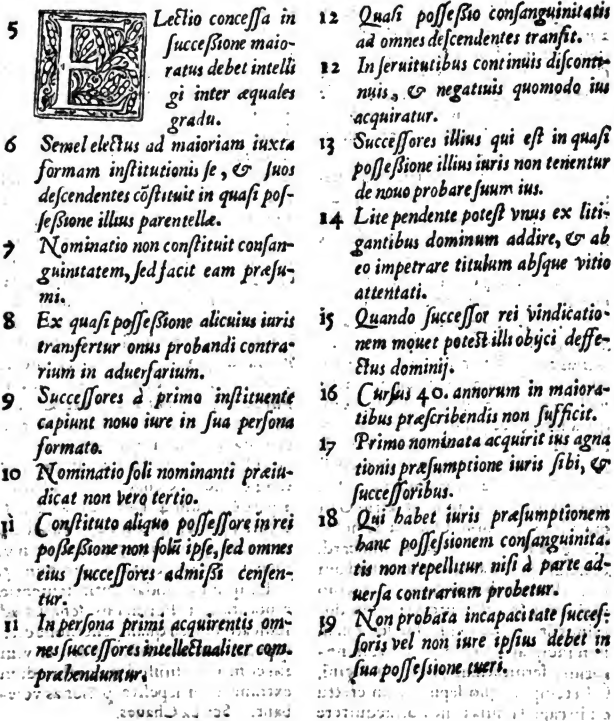 5 ELectio concessa in
successione maio-
ratus debet intelli
gi inter æquales
gradu.
6 Semel electus ad maioriam iuxta
formam institutionis se, & suos
descendentes cōstituit in quasi pos-
sessione illius parentellæ.
7 Nominatio non constituit consan-
guinitatem, sed facit eam præsu-
mi.
8 Ex quasi possessione alicuius iuris
transfertur onus probandi contra-
rium in aduersarium.
9 Successores à primo instituente
capiunt nouo iure in sua persona
formato.
10 Nominatio soli nominanti præiu-
dicat non vero tertio.
11 Constituto aliquo possessore in rei
possessione non solū ipse, sed omnes
eius successores admissi censen-
tur.
11 In persona primi acquirentis om-
nes successores intellectualiter com-
præhenduntur.
12 Quasi possessio consanguinitatis
ad omnes descendentes transit.
12 In seruitutibus continuis disconti-
nuis, & negatiuis quomodo ius
acquiratur.
13 Successores illius qui est in quasi
possessione illius iuris non tenentur
de nouo probare suum ius.
14 Lite pendente potest vnus ex liti-
gantibus dominum addire, & ab
eo impetrare titulum absque vitio
attentati.
15 Quando successor rei vindicatio-
nem mouet potest illi obijci deffe-
ctus dominij.
16 Cursus 40. annorum in maiora-
tibus præscribendis non sufficit.
17 Primo nominata acquirit ius agna
tionis præsumptione iuris sibi, &
successoribus.
18 Qui habet iuris præsumptionem
hanc possessionem consanguinita-
tis non repellitur nisi à parte ad-
uersa contrarium probetur.
19 Non probata incapacitate succes-
soris vel non iure ipsius debet in
sua possessione tueri.